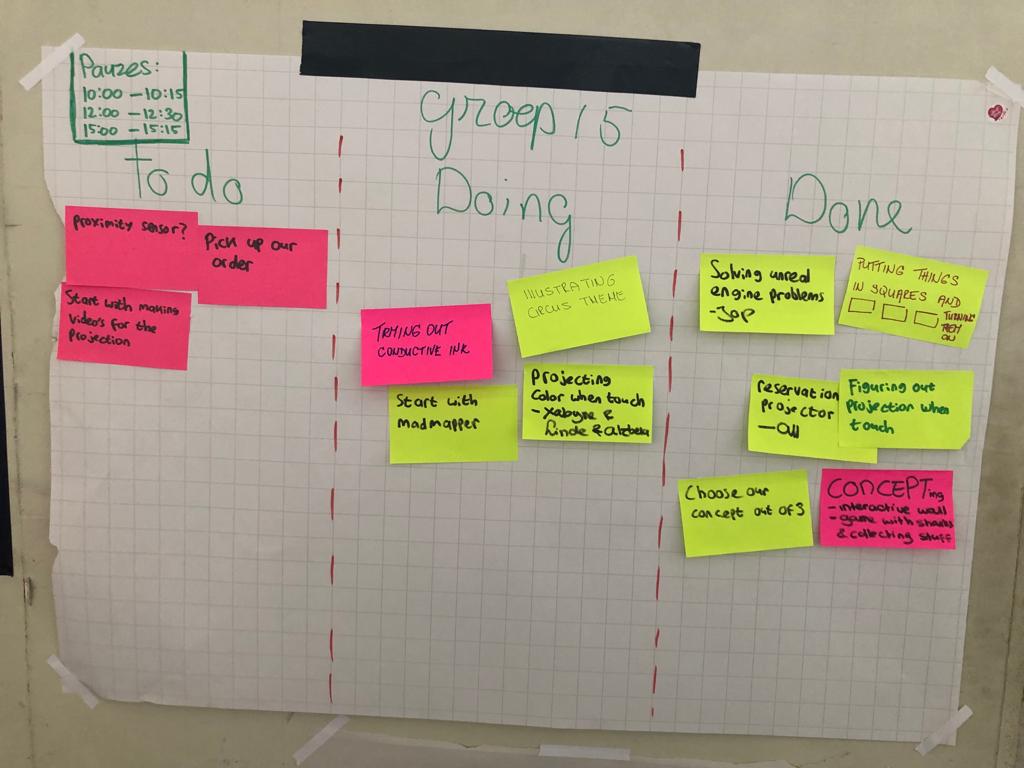 Pauzes:
10:00 - 10:15
12:00 - 12:30
15:00 - 15:15
groep 15
To do
Doing
Done
Proximity sensor?
Pick up our
order
Start with making
video's for the
projection
TRYING OUT
CONDUCTIVE INK
ILLUSTRATING
CIRCUS THEME
Start with
madmapper
Projecting
Color when touch
- Xabyne &
Linde & alzbeta
Solving unreal
engine problems
- Jop
PUTTING THINGS
IN SQUARES AND
TURNING
THEM
ON
reservation
projector
- All
Figuring out
projection when
touch
Choose our
concept out of 3
CONCEPTing
- interactive wall
- game with sharks
& collecting stuff